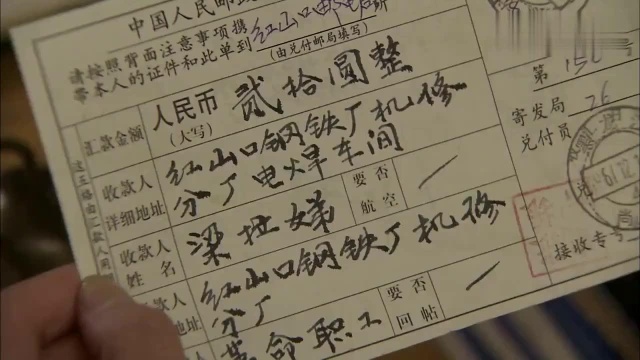 中国人民邮政
请按照背面注意事项携
带本人的证件和此单到红山口邮电所
(由兑付邮局填写)
汇款金额
人民币
(大写)
贰拾圆整
收款人
详细地址
红山口钢铁厂机修
分厂电焊车间
收款人
姓名
梁拉娣
要否
航空
款人
地址
红山口钢铁厂机修
分厂
款人
革命职工
要否
回帖
第150
寄发局
兑付员
26
接收专号